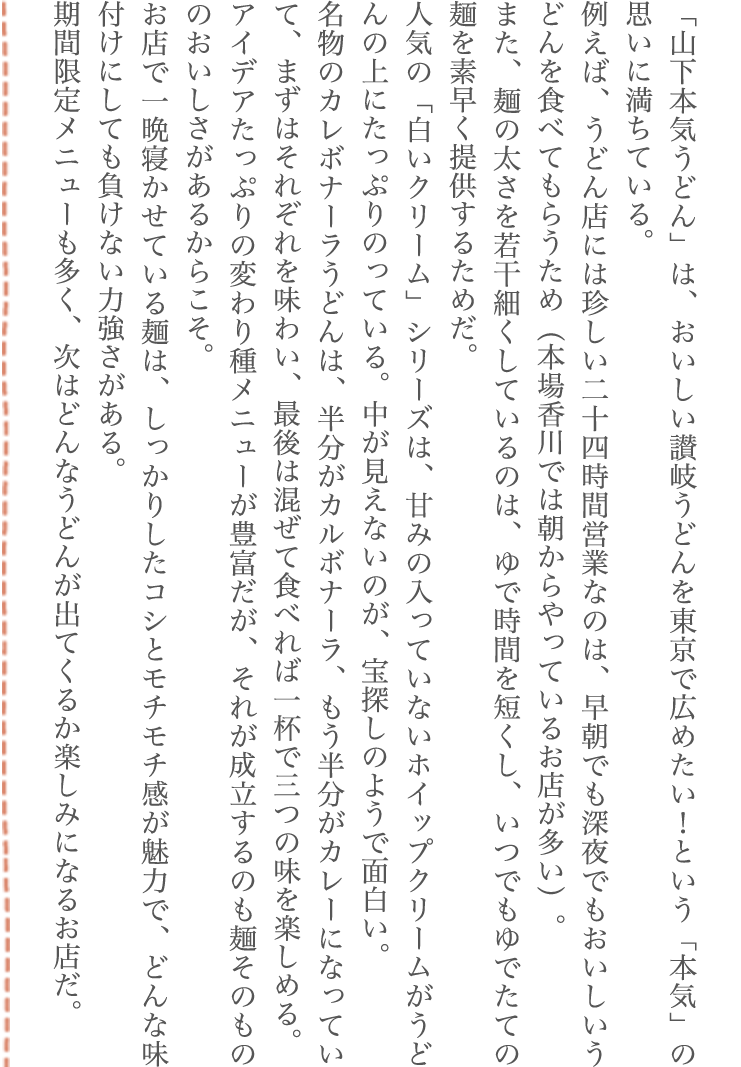 「山下本気うどん」は、おいしい讃岐うどんを東京で広めたい！という「本気」の
思いに満ちている。
例えば、うどん店には珍しい二十四時間営業なのは、早朝でも深夜でもおいしいう
どんを食べてもらうため（本場香川では朝からやっているお店が多い）。
また、麺の太さを若干細くしているのは、ゆで時間を短くし、いつでもゆでたての
麺を素早く提供するためだ。
人気の「白いクリーム」シリーズは、甘みの入っていないホイップクリームがうど
んの上にたっぷりのっている。中が見えないのが、宝探しのようで面白い。
名物のカレボナーラうどんは、半分がカルボナーラ、もう半分がカレーになってい
て、まずはそれぞれを味わい、最後は混ぜて食べれば一杯で三つの味を楽しめる。
アイデアたっぷりの変わり種メニューが豊富だが、それが成立するのも麺そのもの
のおいしさがあるからこそ。
お店で一晩寝かせている麺は、しっかりしたコシとモチモチ感が魅力で、どんな味
付けにしても負けない力強さがある。
期間限定メニューも多く、次はどんなうどんが出てくるか楽しみになるお店だ。